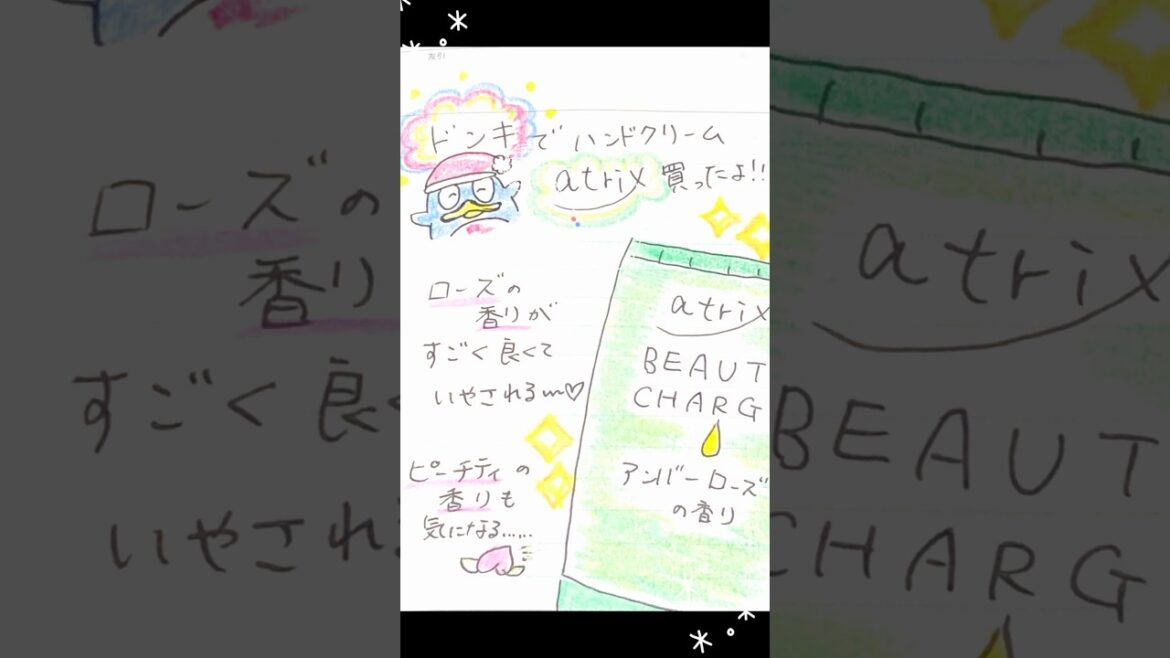 ドンキでハンドクリーム
atrix買ったよ!!
ローズの
香りが
すごく良くて
いやされる〜♡
ピーチティの
香りも
気になる......
atrix
BEAUT
CHARG
アンバーローズ
の香り
ローズの
香り
すごく良く
いやされ
atrix
BEAUT
CHARG